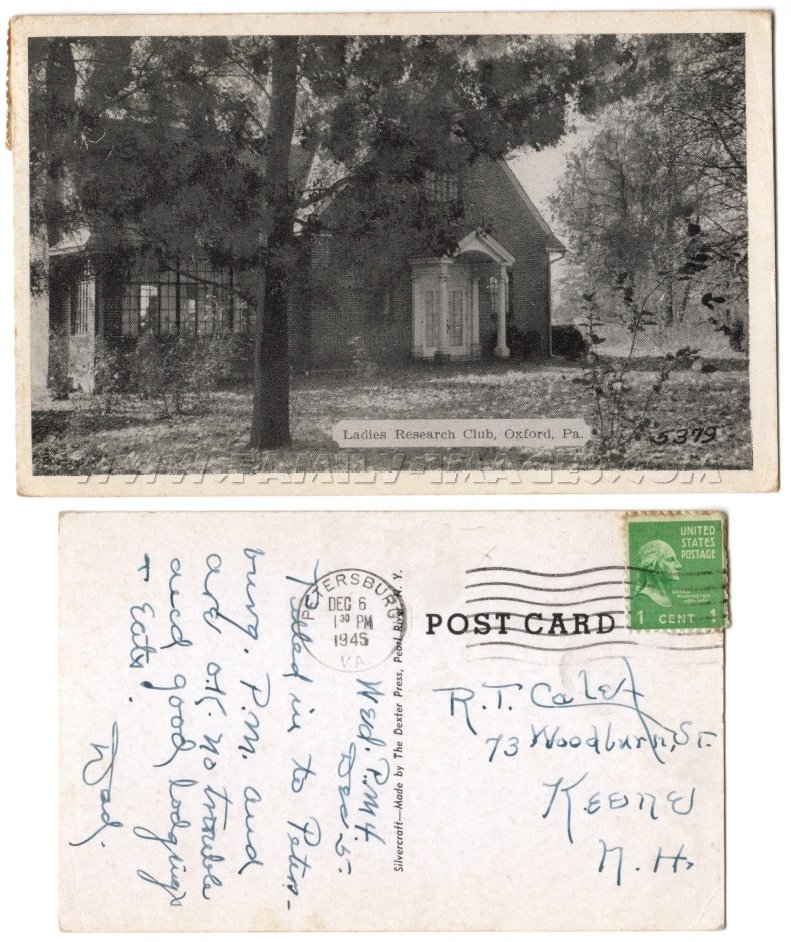 Ladies Research Club, Oxford, Pa.
5379
WWW.FAMILY-IMAGES.COM
PETERSBURG
DEC 6
1 30 PM
1945
VA.
UNITED
STATES
POSTAGE
GEORGE
WASHINGTON
1 CENT 1
POST CARD
Silvercraft—Made by The Dexter Press, Pearl River, N. Y.
Wed. P.M.
Dec. 5-
Pulled in to Peters-
burg. P.M. and
are O.K. no trouble
and good lodgings
+ Eats.
Dad.
R.T. Calef
73 Woodburn, St.
Keene
N.H.